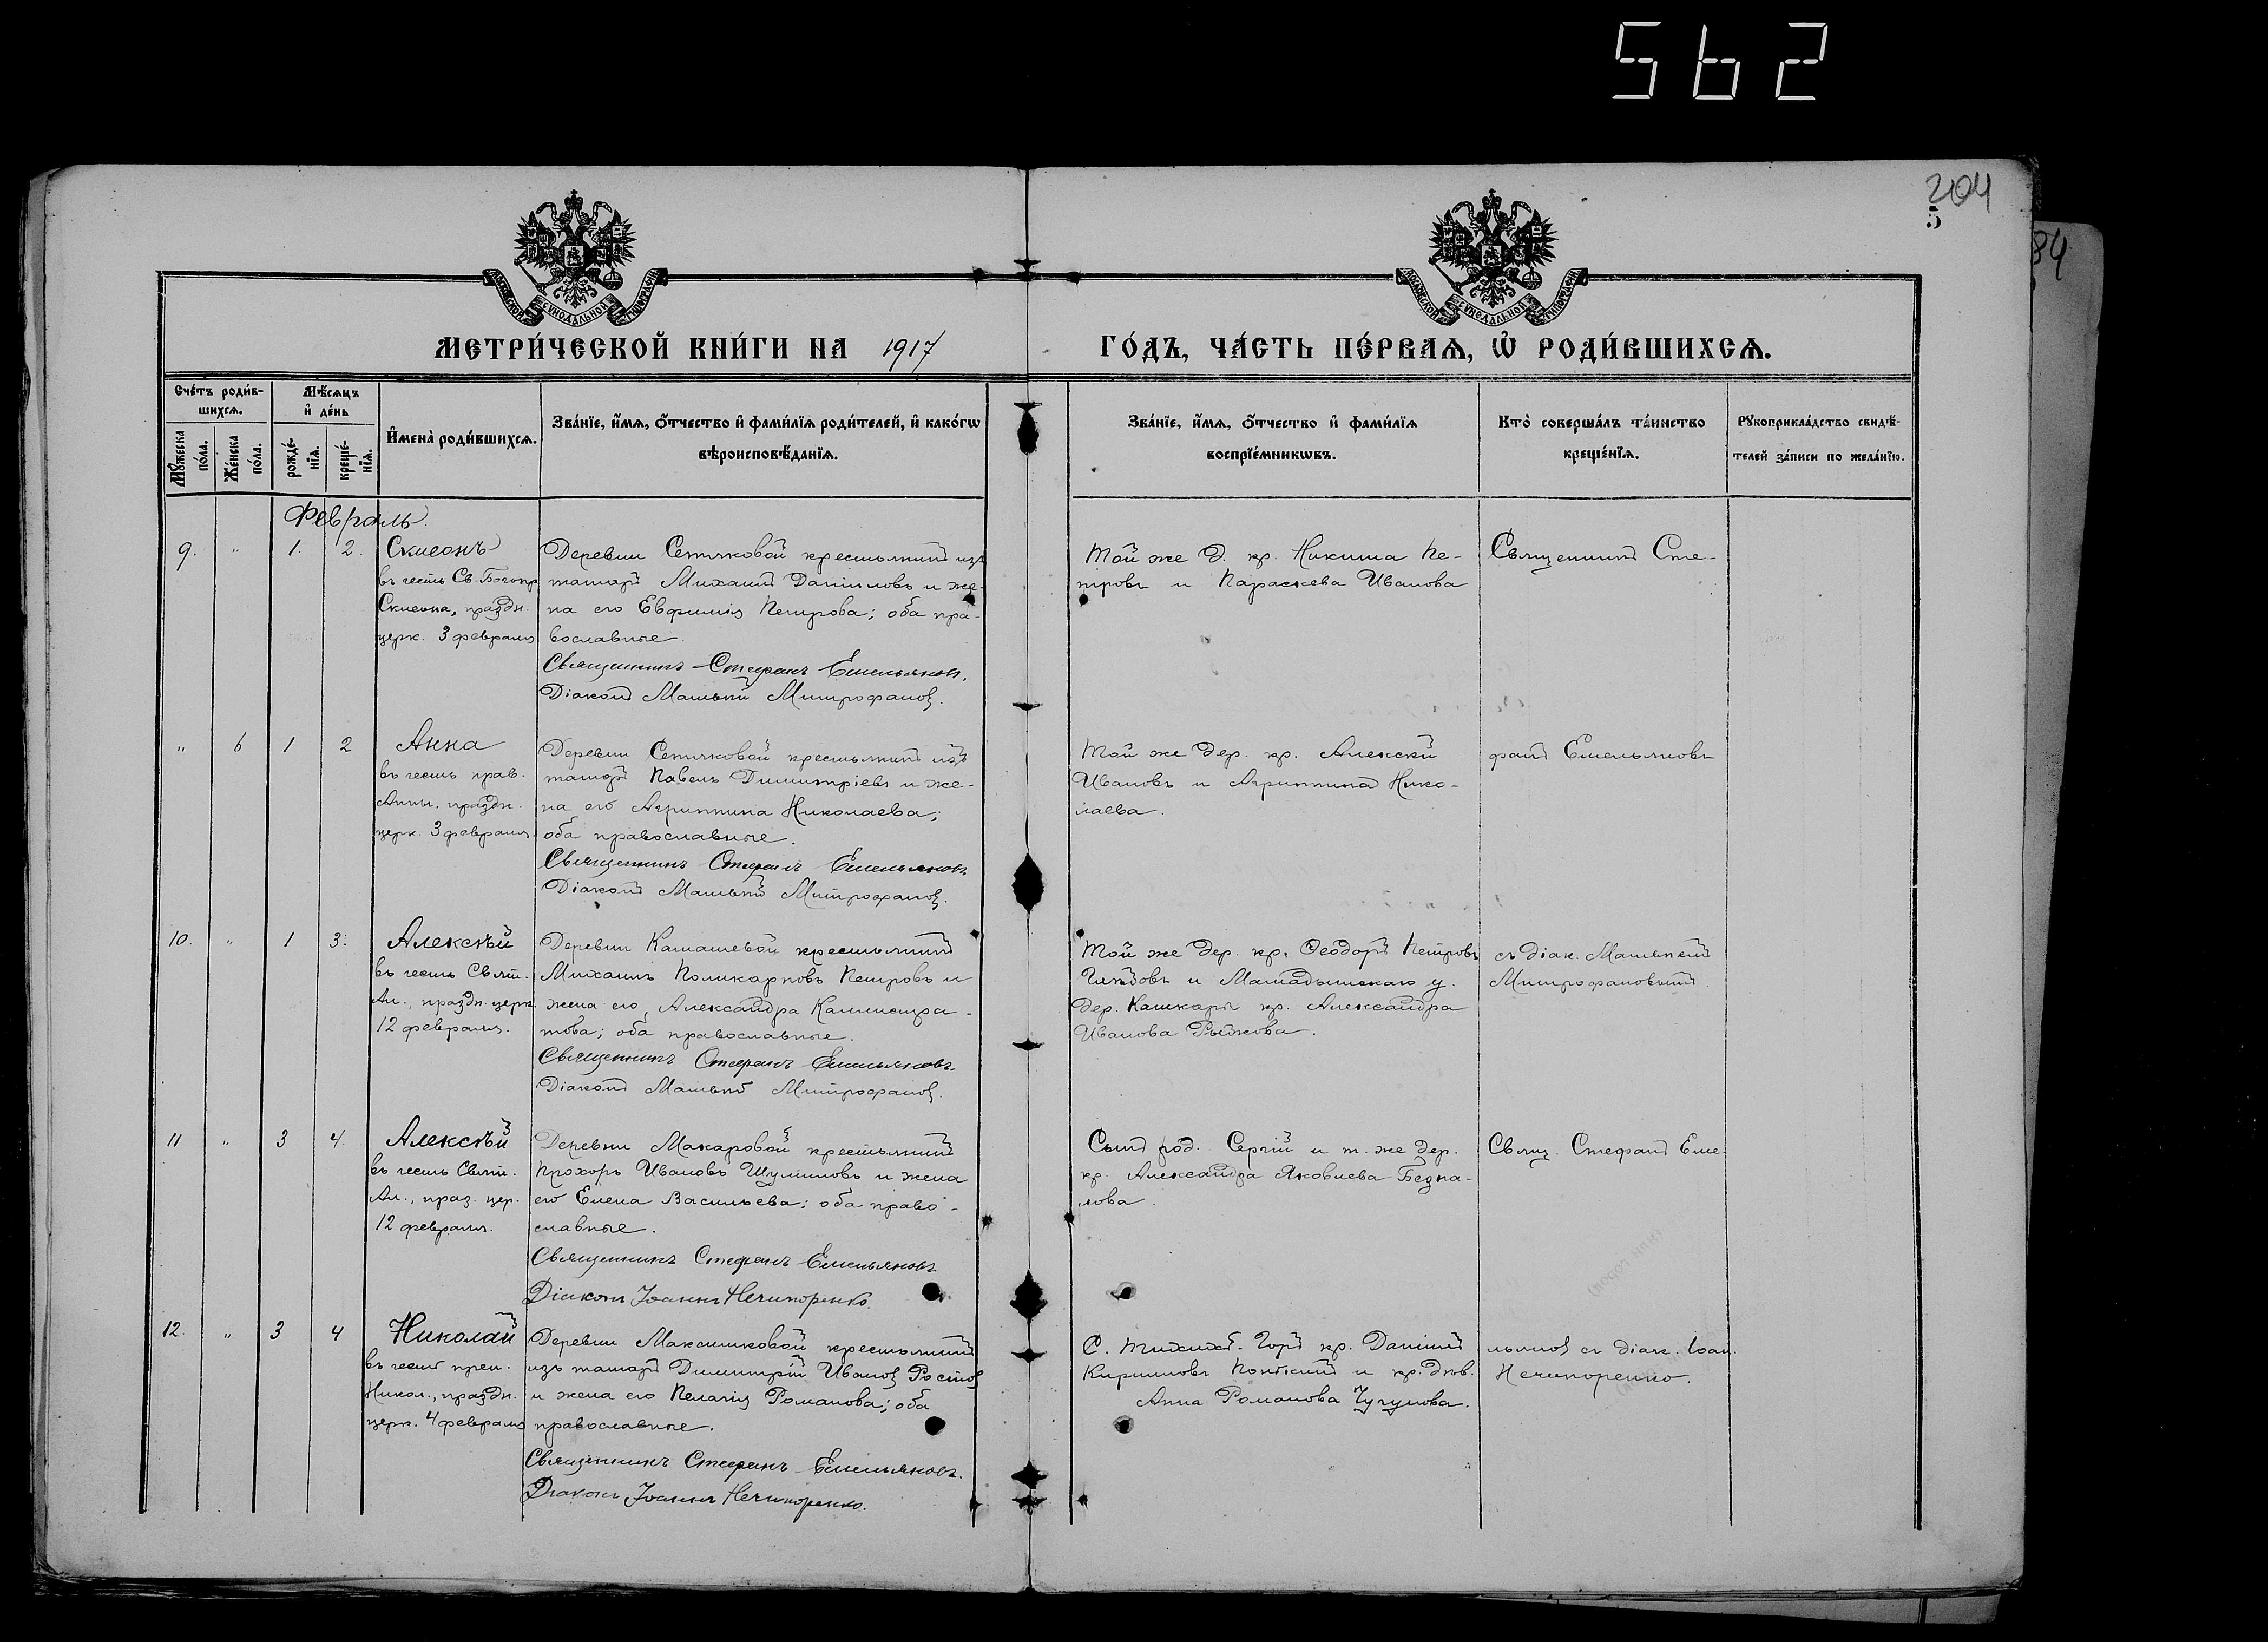 562
204
5
84
МОСКОВСКОЙ СУНОДАЛЬНОЙ ТИПОГРАФИИ
МОСКОВСКОЙ СУНОДАЛЬНОЙ ТИПОГРАФИИ
МЕТРИ́ЧЕСКОЙ КНИ́ГИ НА 1917 ГО́ДЪ, ЧА́СТЬ ПЕ́РВАѦ, Ѡ҆ РОДИ́ВШИХСѦ.
Сче́тъ роди́в-
шихсѧ.
Мꙋ́жеска по́ла.
Же́нска по́ла.
Мѣ́сѧцъ
и҆ де́нь
рожде́-
нїѧ.
креще́-
нїѧ.
И҆мена̀ роди́вшихсѧ.
Зва́нїе, и҆́мѧ, ѻ҆́тчество и҆ фами́лїѧ роди́телей, и҆ како́гѡ
вѣроисповѣ́данїѧ.
Зва́нїе, и҆́мѧ, ѻ҆́тчество и҆ фами́лїѧ
воспрїе́мникѡвъ.
Кто̀ соверша́лъ та́инство
креще́нїѧ.
Рꙋкоприкла́дство свидѣ́-
телей за́писи по жела́нїю.
Февраль.
9. " 1. 2. Сѵмеонъ
въ честь Св. Богопр.
Сѵмеона, праздн.
церк. 3 февраля
Деревни Сетяковой крестьянинъ изъ
татаръ Михаилъ Данииловъ и же-
на его Евфимія Петрова; оба пра-
вославные
Священникъ Стефанъ Емельяновъ.
Діаконъ Матвѣй Митрофановъ.
Той же д. кр. Никита Пе-
тровъ и Параскева Иванова
Священникъ Сте-
" 6 1 2 Анна
въ честь прав.
Анны, праздн.
церк. 3 февраля.
Деревни Сетяковой крестьянинъ изъ
татаръ Павелъ Димитріевъ и же-
на его Агриппина Николаева;
оба православные.
Священникъ Стефанъ Емельяновъ
Діаконъ Матвѣй Митрофановъ.
Той же дер. кр. Алексѣй
Ивановъ и Агриппина Нико-
лаева.
фанъ Емельяновъ
10. " 1 3. Алексѣй
въ честь Свят.
Ал., праздн. церк.
12 февраля.
Деревни Камашевой крестьянинъ
Михаилъ Поликарповъ Петровъ и
жена его, Александра Каллистра-
това; оба православные.
Священникъ Стефанъ Емельяновъ.
Діаконъ Матвѣй Митрофановъ.
Той же дер. кр. Ѳеодоръ Петровъ
и Мамадышскаго у.
дер. Кашкары кр. Александра
Иванова Рыжова.
съ діак. Матвѣемъ
Митрофановымъ.
11 " 3 4. Алексѣй
въ честь Свят.
Ал., праз. цер.
12 февраля.
Деревни Макаровой крестьянинъ
Прохоръ Ивановъ Шумиловъ и жена
его Елена Васильева; оба право-
славные.
Священникъ Стефанъ Емельяновъ.
Діаконъ Іоаннъ Нечипоренко.
Сынъ род. Сергій и т. же дер.
кр. Александра Яковлева Безпа-
лова.
Свящ. Стефанъ Еме-
12. " 3 4 Николай
въ честь преп.
Никол., праздн.
церк. 4 февраля
Деревни Максимковой крестьянинъ
изъ татаръ Димитрій Ивановъ Ростовъ
и жена его Пелагія Романова; оба
православные.
Священникъ Стефанъ Емельяновъ.
Діаконъ Іоаннъ Нечипоренко.
С. Тихихъ-Горъ кр. Даніилъ
Кирилловъ и кр. дѣв.
Анна Романова Чугунова.
льяновъ съ діак. Іоан.
Нечипоренко.